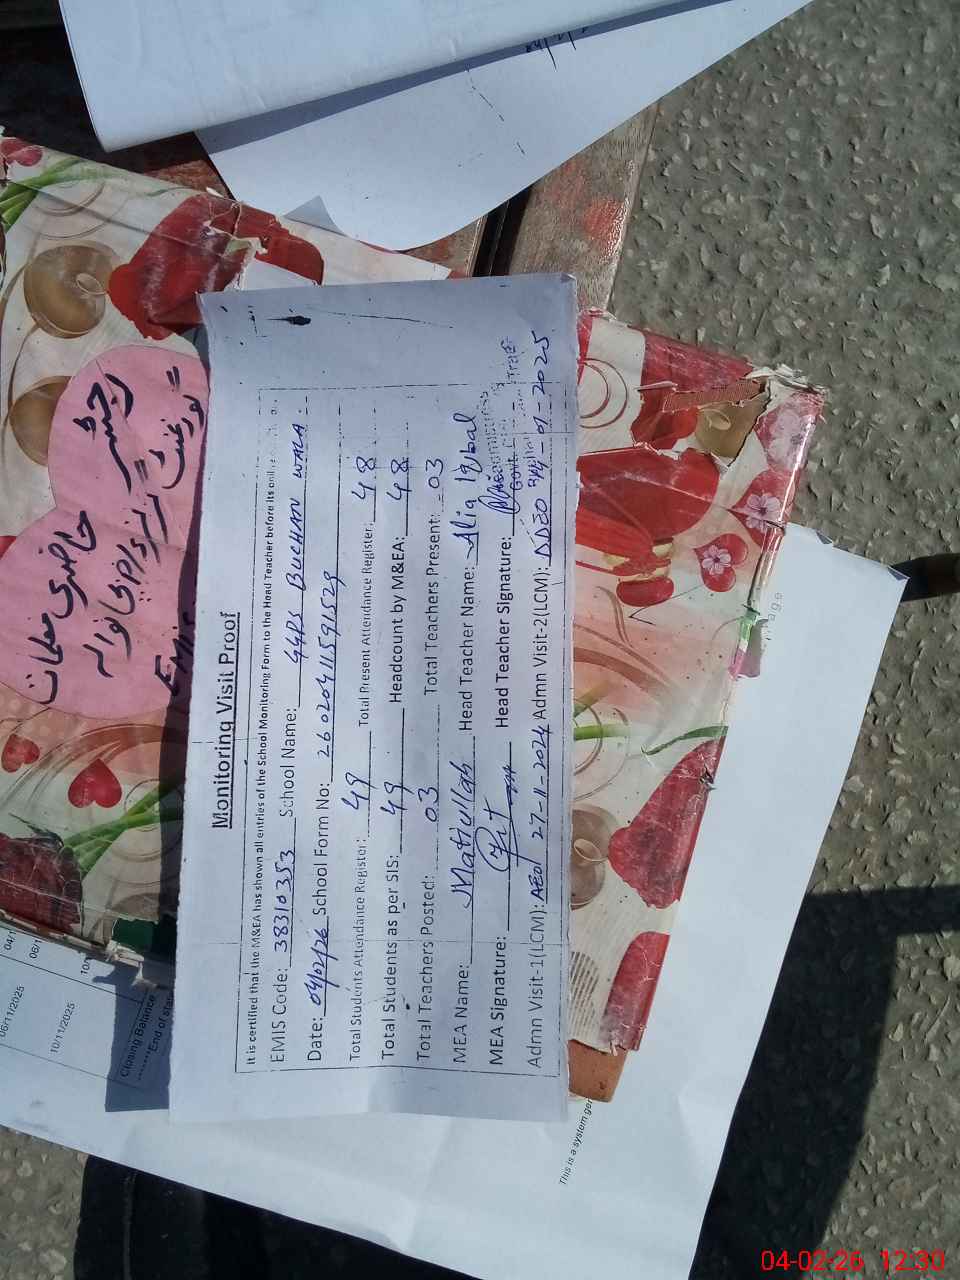 Monitoring Visit Proof
It is certified that the M&EA has shown all entries of the School Monitoring Form to the Head Teacher before its
EMIS Code: 38310353 School Name: GGPS BUCHAN WALA
Date: 04/02/26 School Form No: 26020411591529
Total Students Attendance Register: 49 Total Present Attendance Register: 48
Total Students as per SIS: 49 Headcount by M&EA: 48
Total Teachers Posted: 03 Total Teachers Present: 03
MEA Name: Matiullah Head Teacher Name: Alia Iqbal
MEA Signature: Head Teacher Signature:
Headmistress
Govt.
Admn Visit-1(LCM): AEO 27-11-2024 Admn Visit-2(LCM): DDEO -01-2025
رجسٹر
حاضری معلمات
گورنمنٹ گرلز
EMIS
04/1
06/1
10/1
06/11/2025
10/11/2025
Closing Balance
This is a system ger
age
04-02-26 12:30